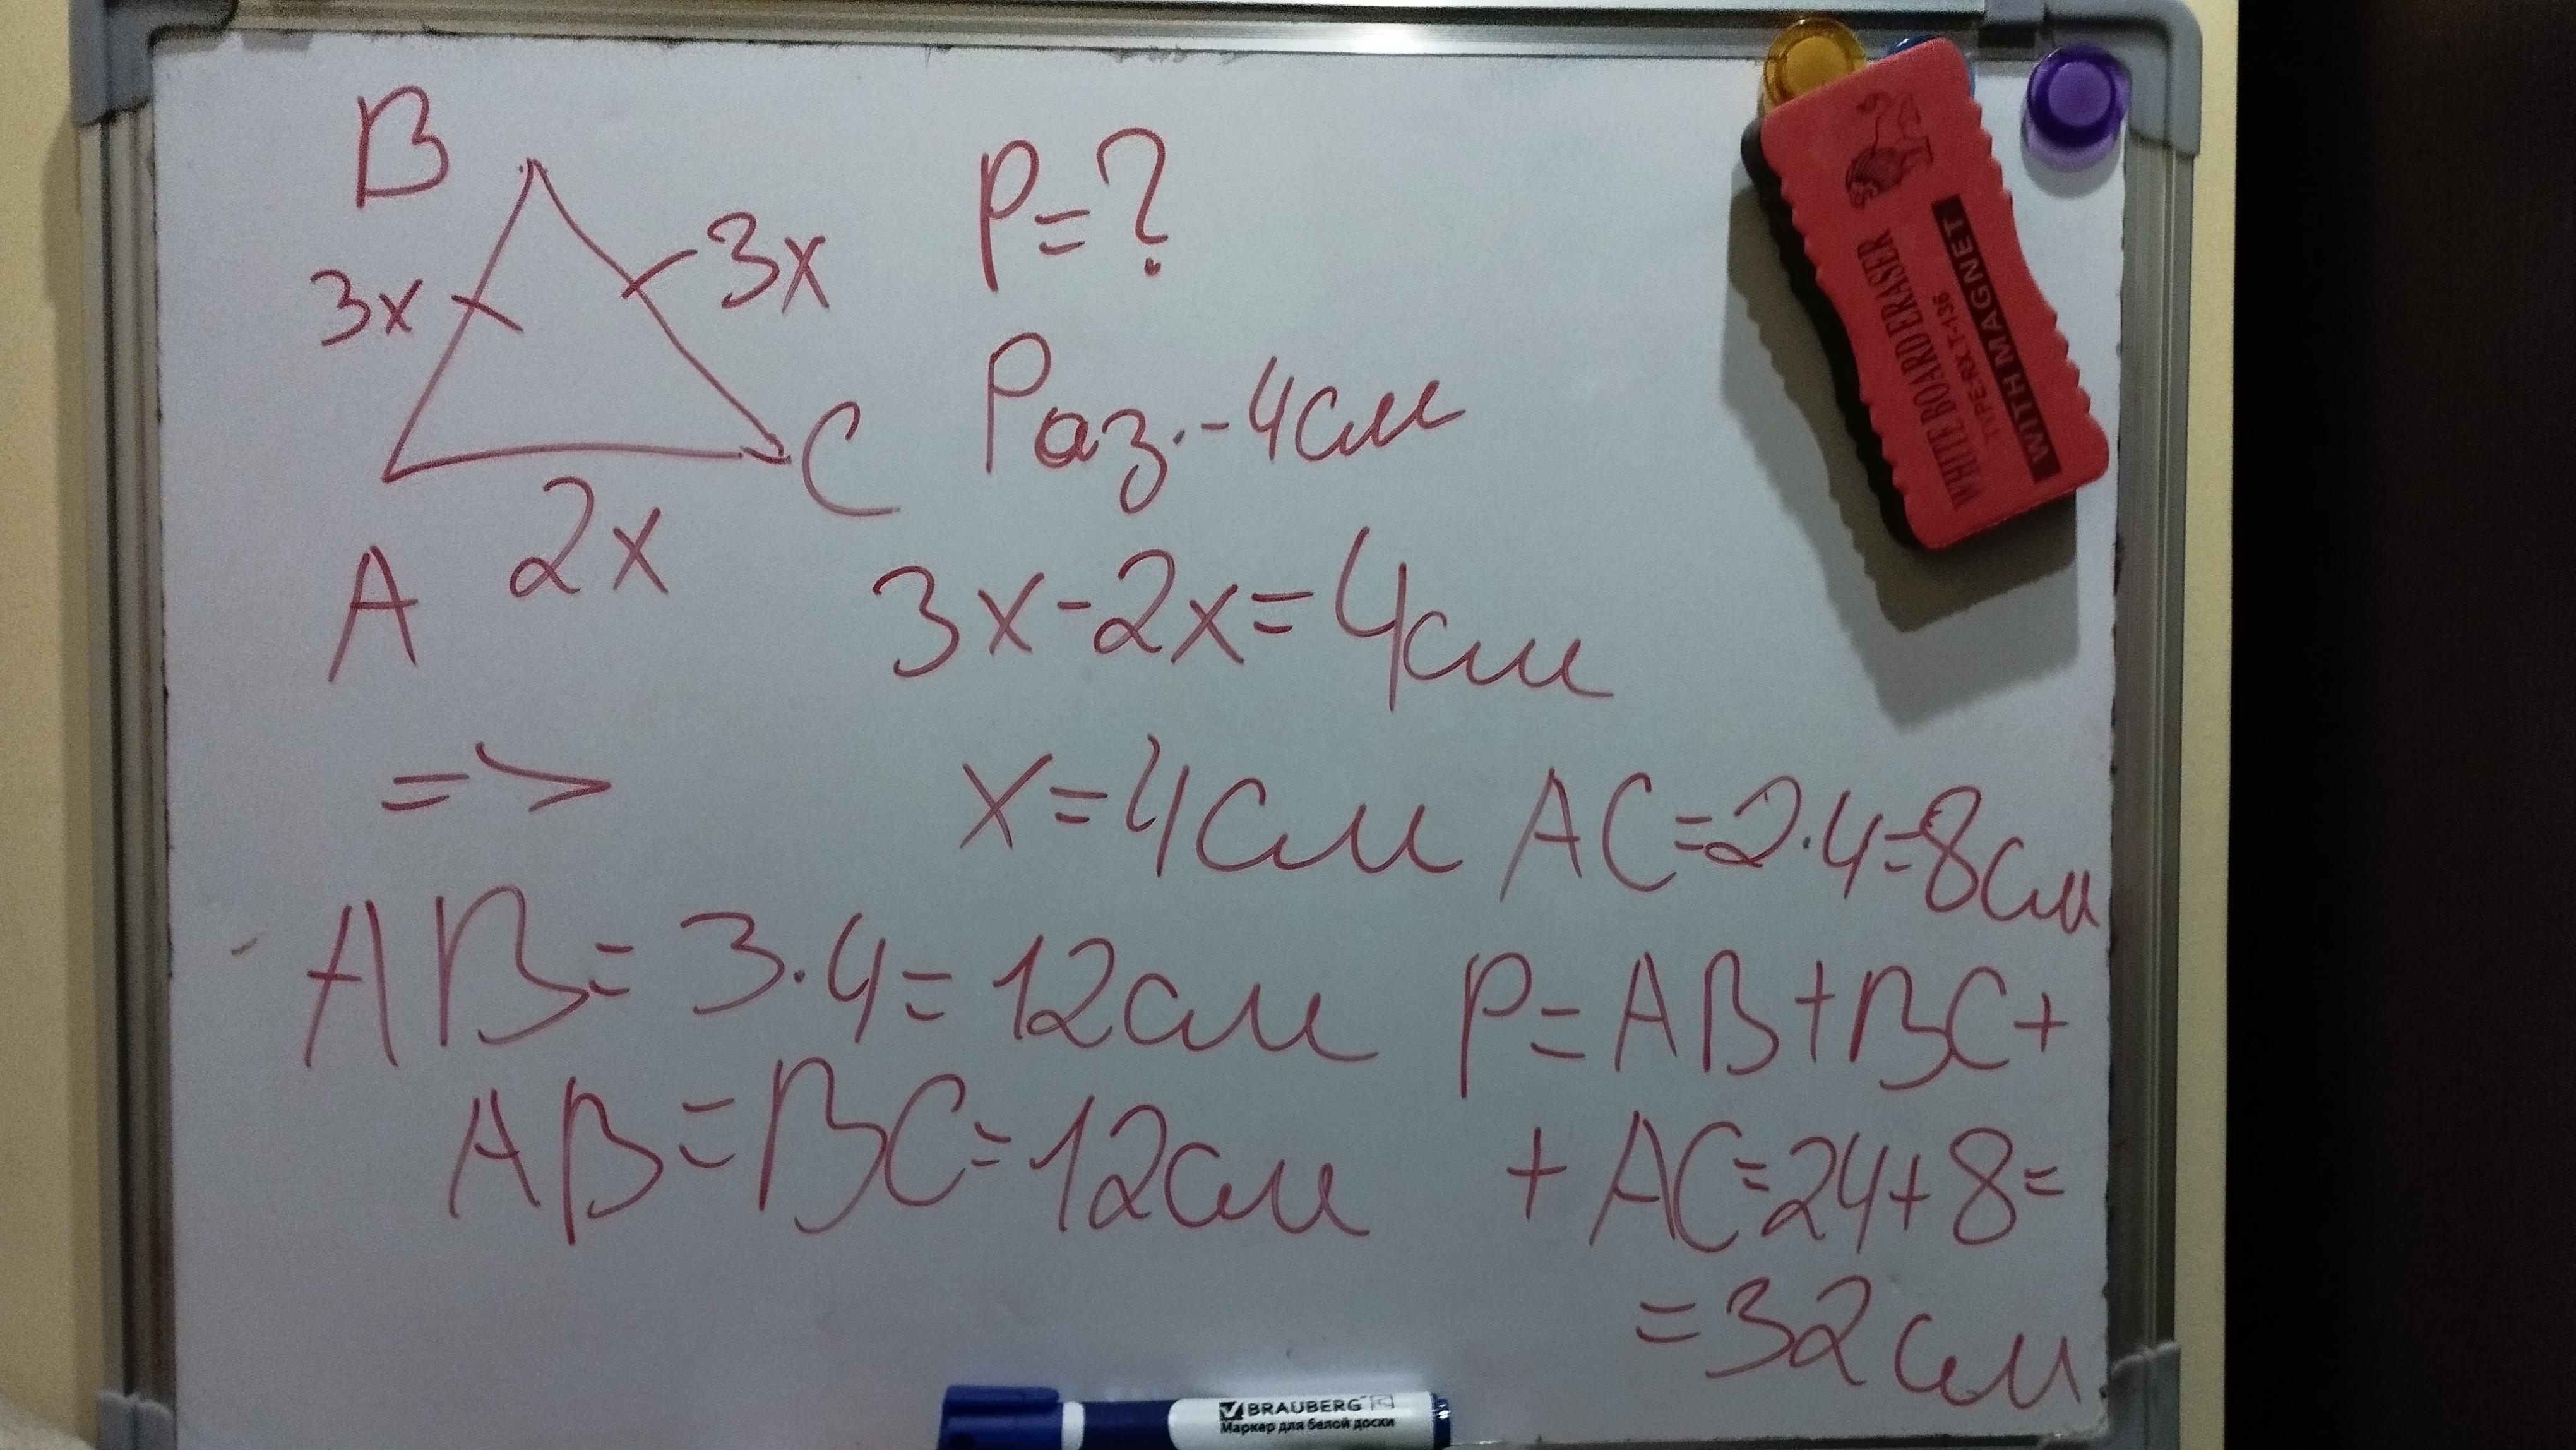 B
3x
3x
A
2x
C
P=?
Раз.-4см
3x-2x=4см
=>
x=4см
AC=2·4=8см
AB=3·4=12см
AB=BC=12см
P=AB+BC+
+AC=24+8=
=32см
WHITE BOARD ERASER
TYPE:RX.T-136
WITH MAGNET
BRAUBERG
Маркер для белой доски